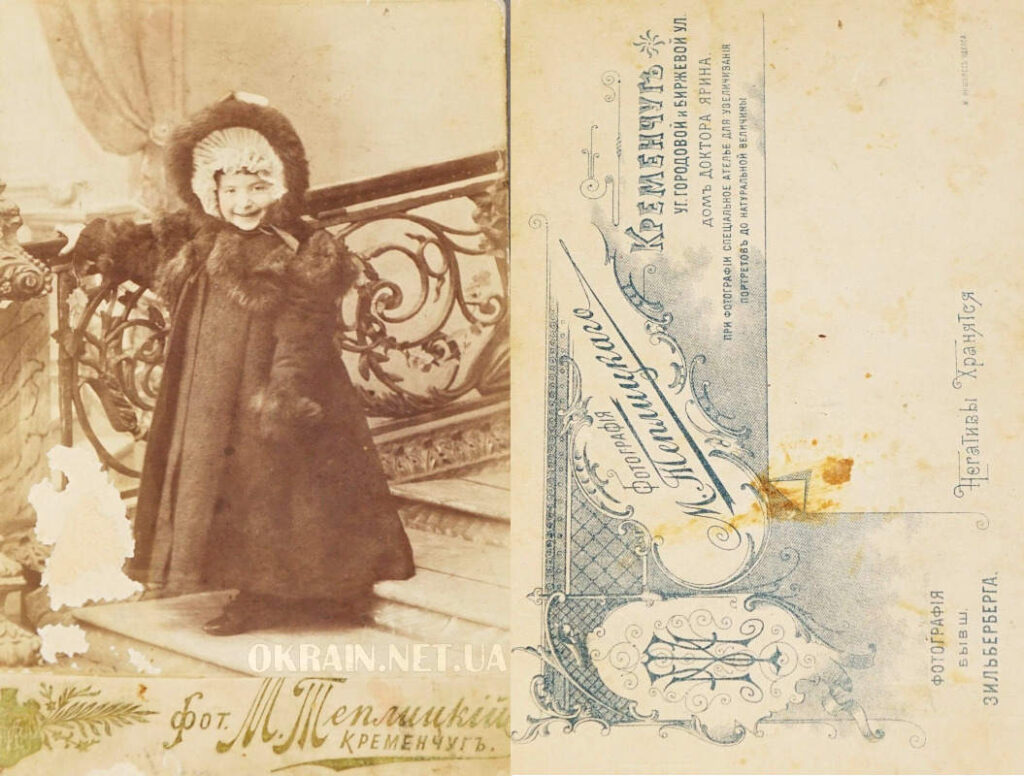 OKRAIN.NET.UA
Фот. М. Теплицкій
КРЕМЕНЧУГЪ.
ФОТОГРАФІЯ
М. Теплицкаго
КРЕМЕНЧУГЪ
УГ. ГОРОДОВОЙ И БИРЖЕВОЙ УЛ.
ДОМЪ ДОКТОРА ЯРИНА.
ПРИ ФОТОГРАФІИ СПЕЦІАЛЬНОЕ АТЕЛЬЕ ДЛЯ УВЕЛИЧИВАНІЯ
ПОРТРЕТОВЪ ДО НАТУРАЛЬНОЙ ВЕЛИЧИНЫ
Негативы Хранятся
ФОТОГРАФІЯ
БЫВШ.
ЗИЛЬБЕРБЕРГА.